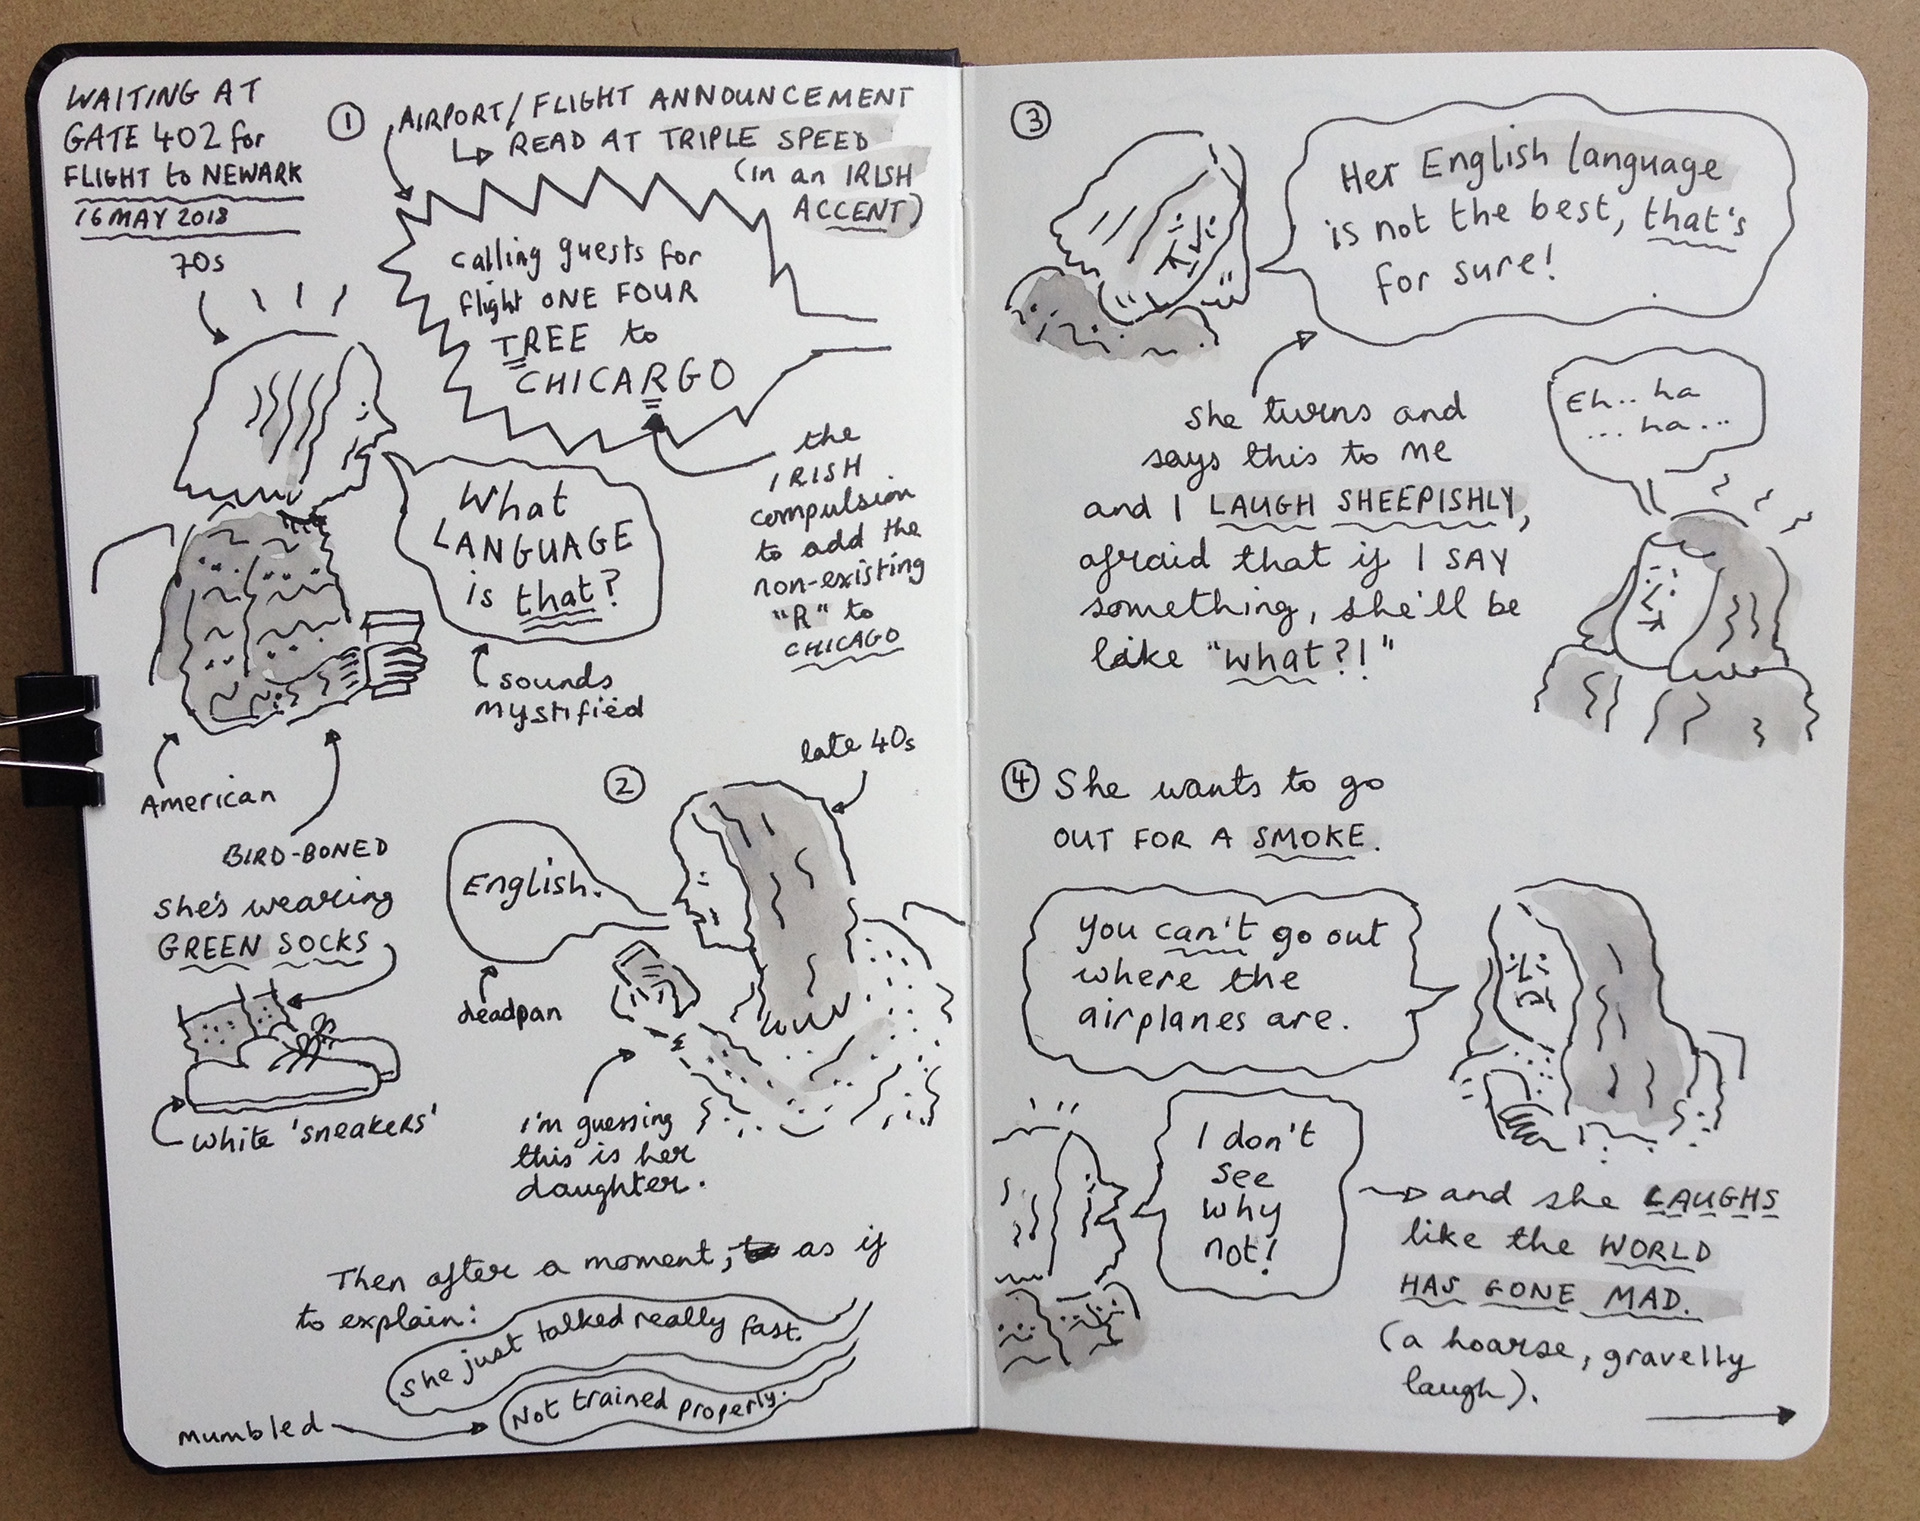 WAITING AT
GATE 402 for
FLIGHT to NEWARK
16 MAY 2018
1
AIRPORT/FLIGHT ANNOUNCEMENT
READ AT TRIPLE SPEED
(in an IRISH
ACCENT)
calling guests for
flight ONE FOUR
TREE to
CHICARGO
the
IRISH
compulsion
to add the
non-existing
"R" to
CHICAGO
70s
What
LANGUAGE
is that?
sounds
mystified
American
BIRD-BONED
She's wearing
GREEN SOCKS
white 'sneakers'
2
late 40s
English.
deadpan
i'm guessing
this is her
daughter.
Then after a moment, as if
to explain:
She just talked really fast.
Not trained properly.
mumbled
3
Her English language
is not the best, that's
for sure!
She turns and
says this to me
and I LAUGH SHEEPISHLY,
afraid that if I SAY
something, she'll be
like "what?!"
Eh.. ha
... ha...
4
She wants to go
OUT FOR A SMOKE.
You can't go out
where the
airplanes are.
I don't
see
why
not!
and she LAUGHS
like the WORLD
HAS GONE MAD.
(a hoarse, gravelly
laugh).